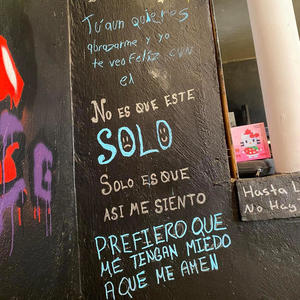 Tú aun quieres
abrazarme y yo
te veo feliz con
el
No es que este
SOLO
Solo es que
asi me siento
PREFIERO QUE
ME TENGAN MIEDO
A QUE ME AMEN
Hasta
No Hay